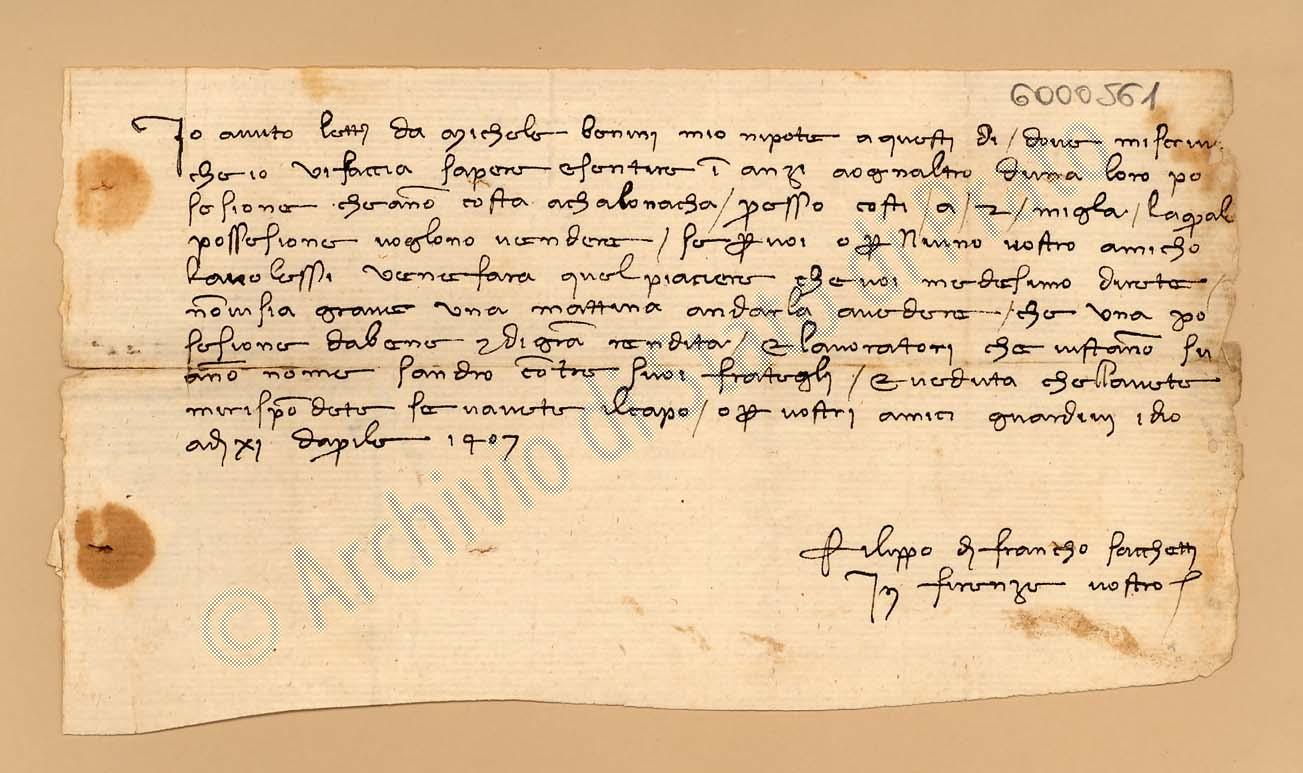 6000561
Io avuto letti da Michele benini mio nipote aquesti di / dove mi scriv
che io vi faccia sapere esentire ī anzi aognaltro duna loro po
sesione cheanō costa achalonacha / presso costi / a / 2 / migla / laqual
possesione voglono vendere / se ꝑ voi o ꝑ niuno vostro amicho
lavolessi venefara quel piaciere che voi medesimo direte /
nōvisia grave una mattina andarla avedere / che una po
sesione dabene e di grā rendita / e lavoratori che vistanō su
anō nome sandro cō tre suoi frategli / e veduta chellavete
mirispōdete se vavete ilcapo / o ꝑ vostri amici guardivi idio
adi xi daprile 1407
Filippo di francho sacchetti
In firenze vostro
© Archivio di Stato di Prato